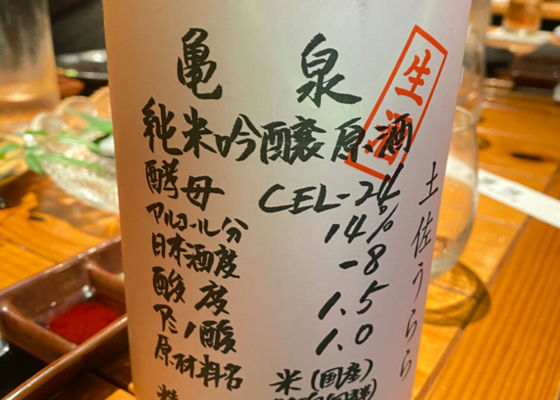 亀泉
生酒
純米吟醸原酒
酵母 CEL-24
アルコール分 14%
日本酒度 -8
酸度 1.5
アミノ酸 1.0
原材料名 米(国産)
土佐うらら